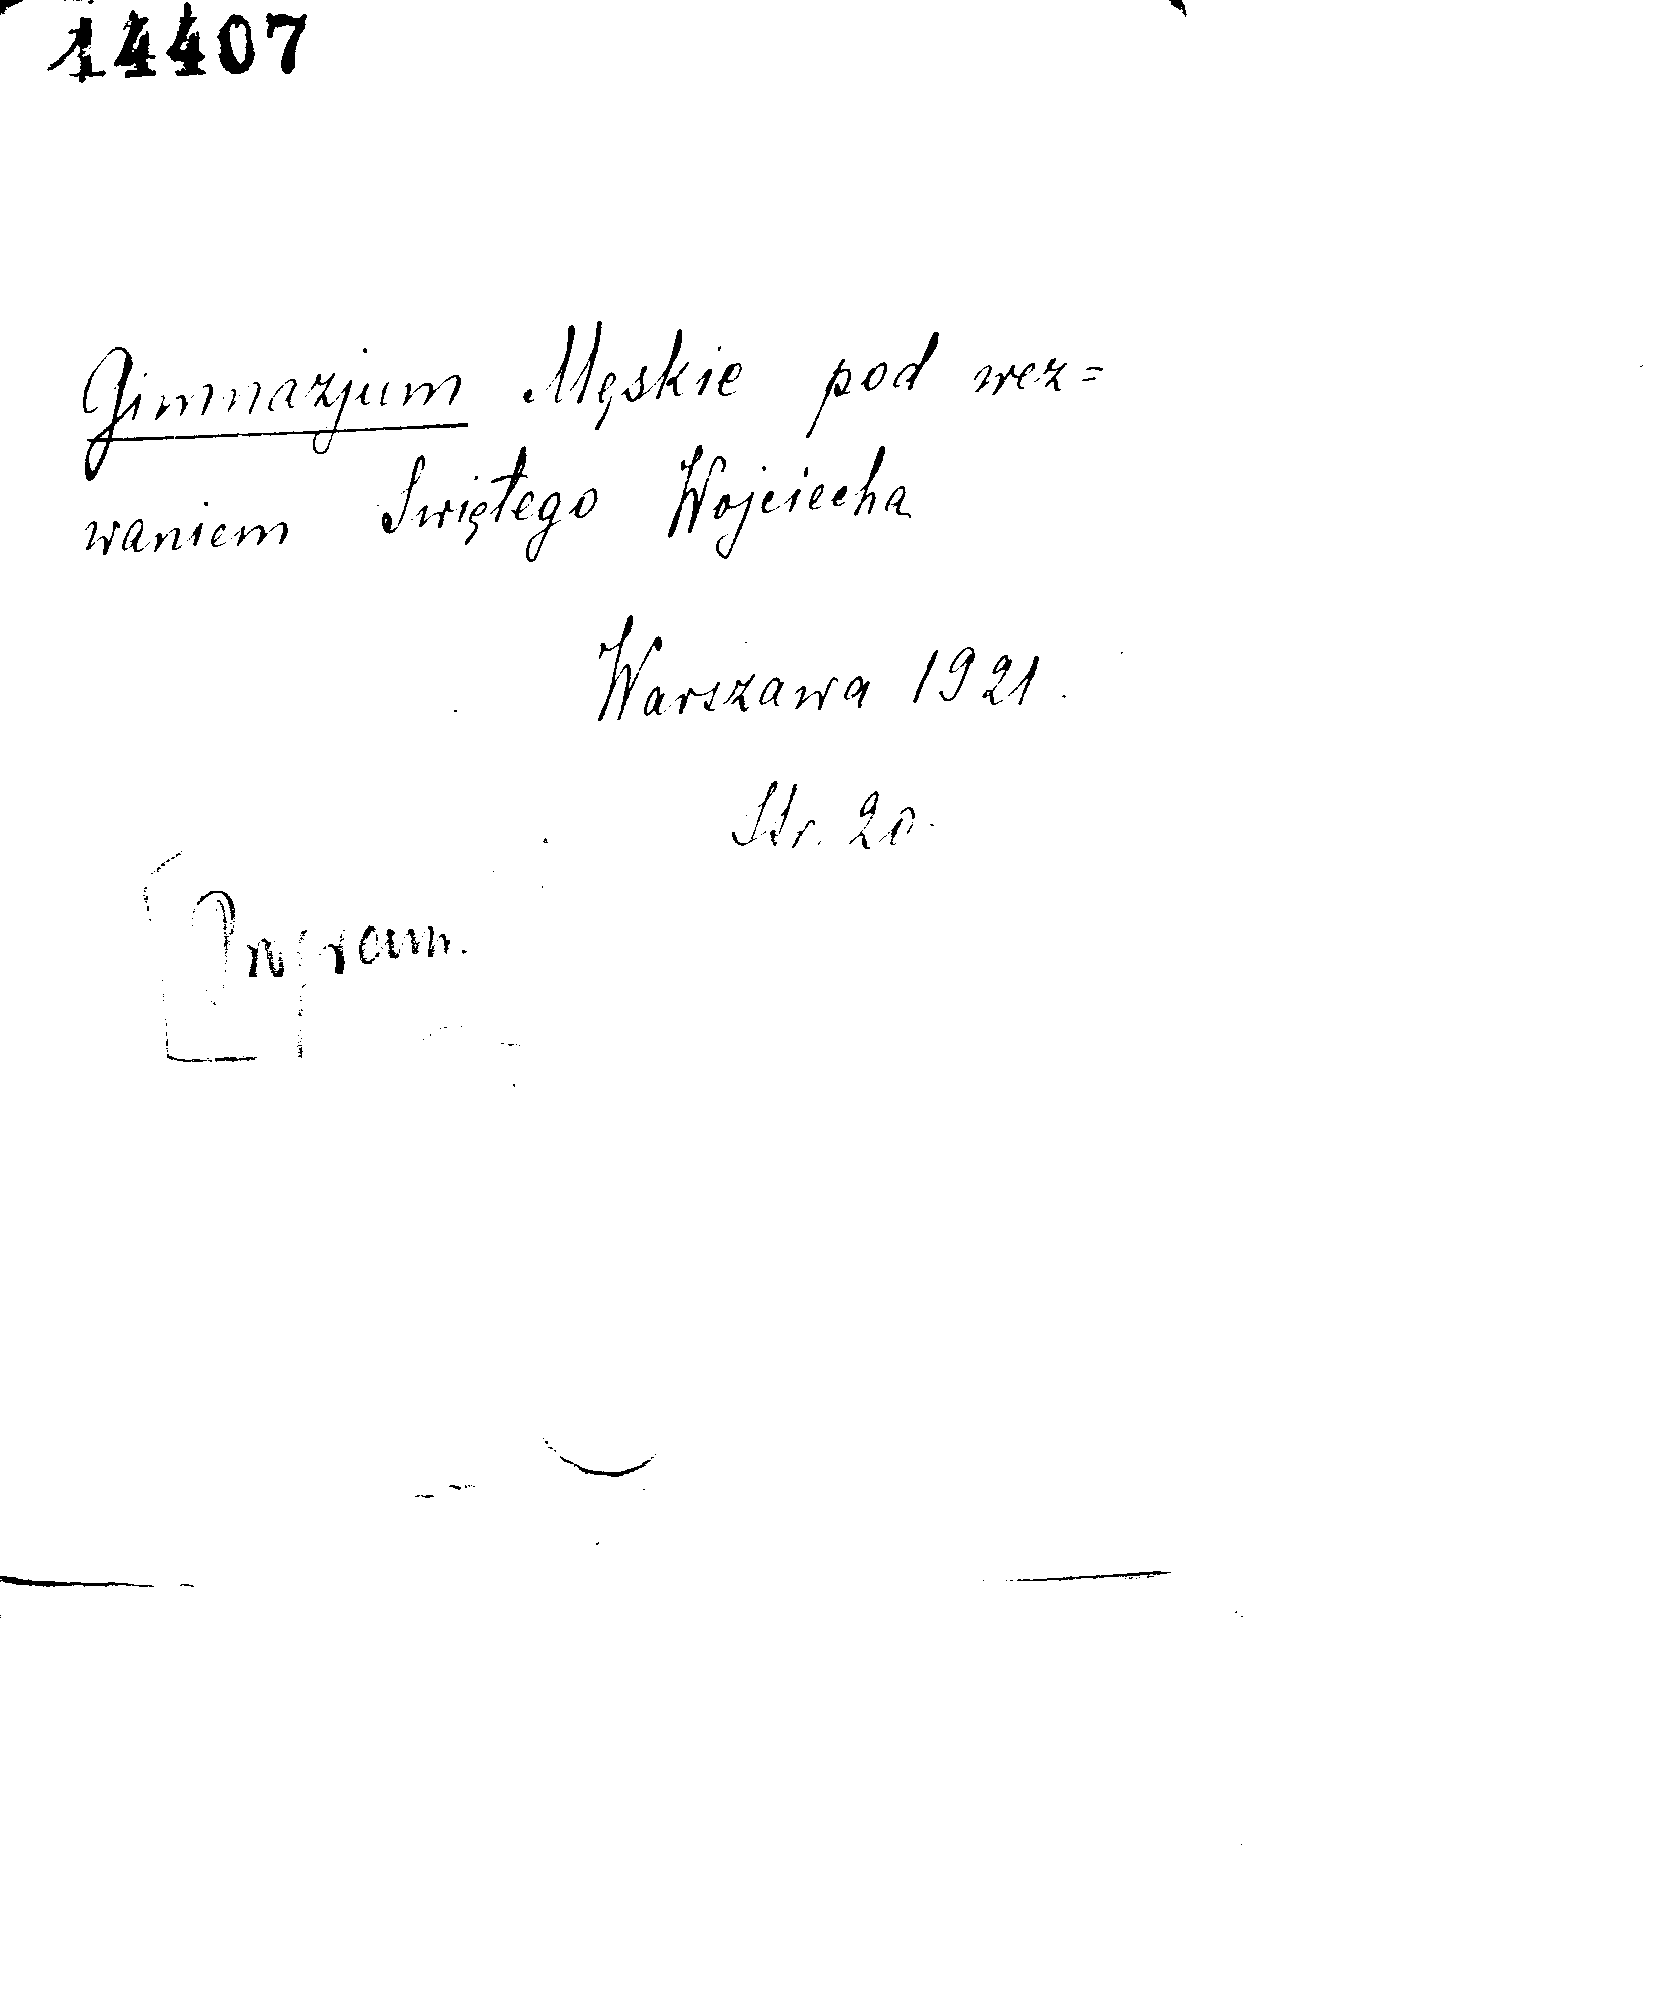 14407
Gimnazjum Męskie pod wez=
waniem Swiętego Wojciecha
Warszawa 1921.
Str. 20.
Program.